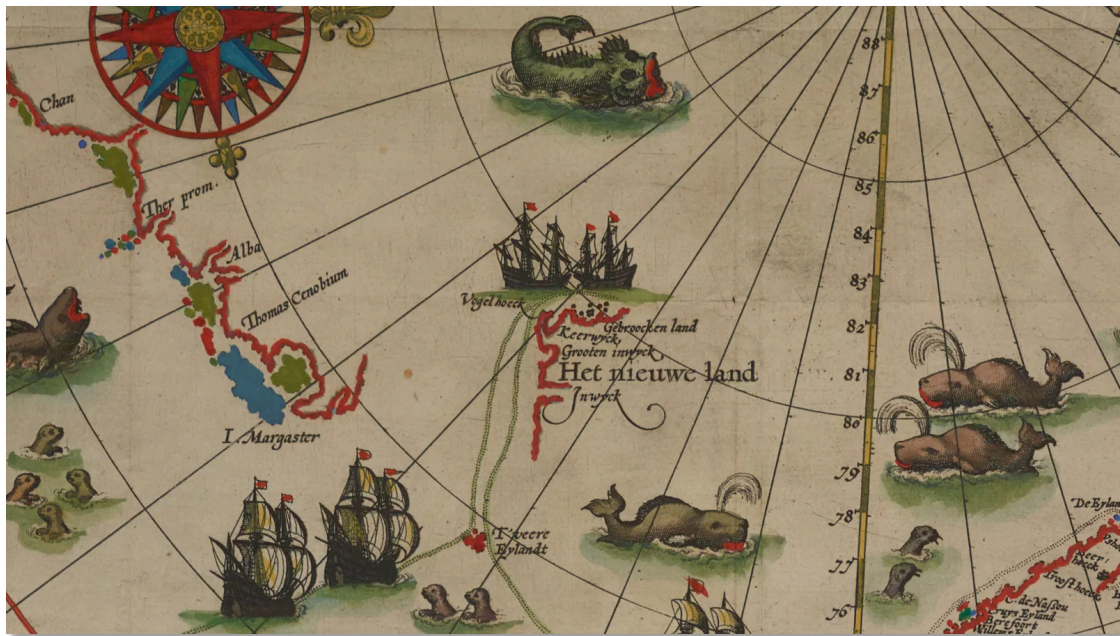 Chan
Ther prom.
Alba
Thomas Cenobium
I. Margaster
Vogel hoeck
Gebroocken land
Keerwyck,
Grooten inwyck
Het nieuwe land
Inwyck
T'veere
Eylandt
88
87
86
85
84
83
82
81
80
79
78
77
76
De Eylan
hoeck
Troost hoeck
C. de Nassou
ruys Eyland
Berefoort
Willems